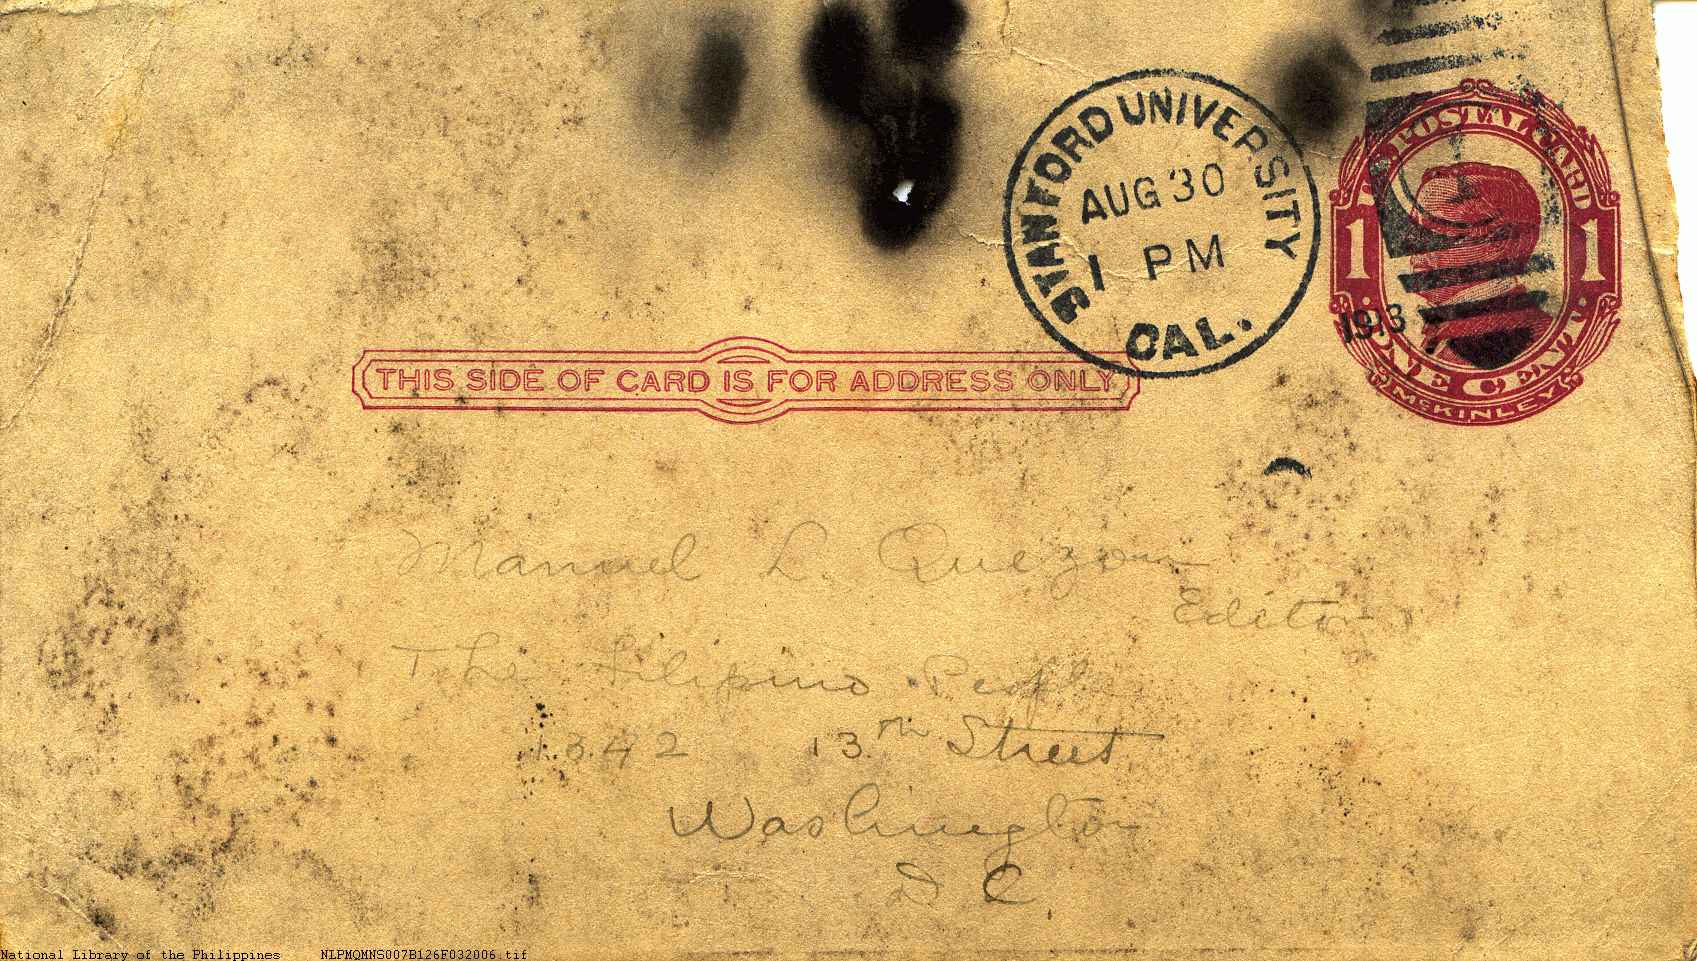 STANFORD UNIVERSITY
AUG 30
1 PM
1913
CAL.
U.S. POSTAL CARD
1 1
ONE CENT
McKINLEY
THIS SIDE OF CARD IS FOR ADDRESS ONLY
Manuel L. Quezon
Editor
The Filipino People
1342 13th Street
Washington
D C
National Library of the Philippines NLPMQMNS007B126F032006.tif